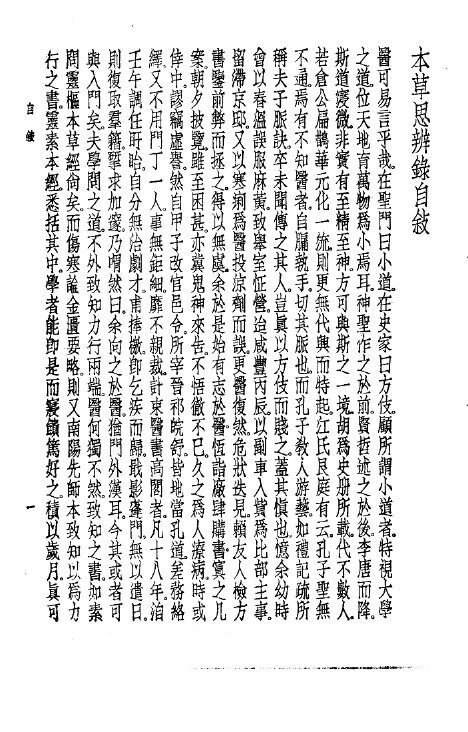 本草思辨錄自敘
醫可易言乎哉。在聖門曰小道。在史家曰方伎。顧所謂小道者。特視大學
之道。位天地育萬物爲小焉耳。神聖作之於前。賢哲述之於後。李唐而降。
斯道寖微。非實有至精至神。方可與斯之一境。胡爲史册所載。代不數人。
若倉公扁鵲華元化一流。則更無代興而特起。江氏艮庭有云。孔子聖無
不通。焉有不知醫者。自牖執手。切其脈也。而孔子教人游藝。如禮記疏所
稱夫子脈訣。卒未聞傳之其人。豈眞以方伎而賤之。蓋其愼也。憶余幼時
曾以春溫誤服麻黃。致舉室怔營。迨咸豐丙辰。以副車入貲爲比部主事。
留滯京邸。又以寒痢爲醫投涼劑而誤。更醫復然。危狀迭見。賴友人檢方
書鑒前弊而拯之。得以無虞。余於是始有志於醫。恆詣廠肆購書。寘之几
案。朝夕披覽。雖至困甚。亦冀鬼神來告。不悟徹不已。久之爲人療病。時或
倖中。謬竊虛譽。然自甲子改官邑令。所宰晉祁皖舒。皆地當孔道。差務絡
繹。又不用門丁一人。事無鉅細。靡不親裁。計束醫書高閣者。凡十八年。洎
壬午調任盱眙。自分無治劇才。甫捧檄卽乞疾而歸。戢影蓬門。無以遣日。
則復取羣籍。研求加邃。乃喟然曰。余向之於醫。猶門外漢耳。今其或者可
與入門矣。夫學問之道。不外致知力行兩端。醫何獨不然。致知之書。如素
問靈樞本草經尙矣。而傷寒論金匱要略。則又南陽先師本致知以爲力
行之書。靈素本經。悉括其中。學者能卽是而寖饋篤好之。積以歲月。眞可
自敘
一